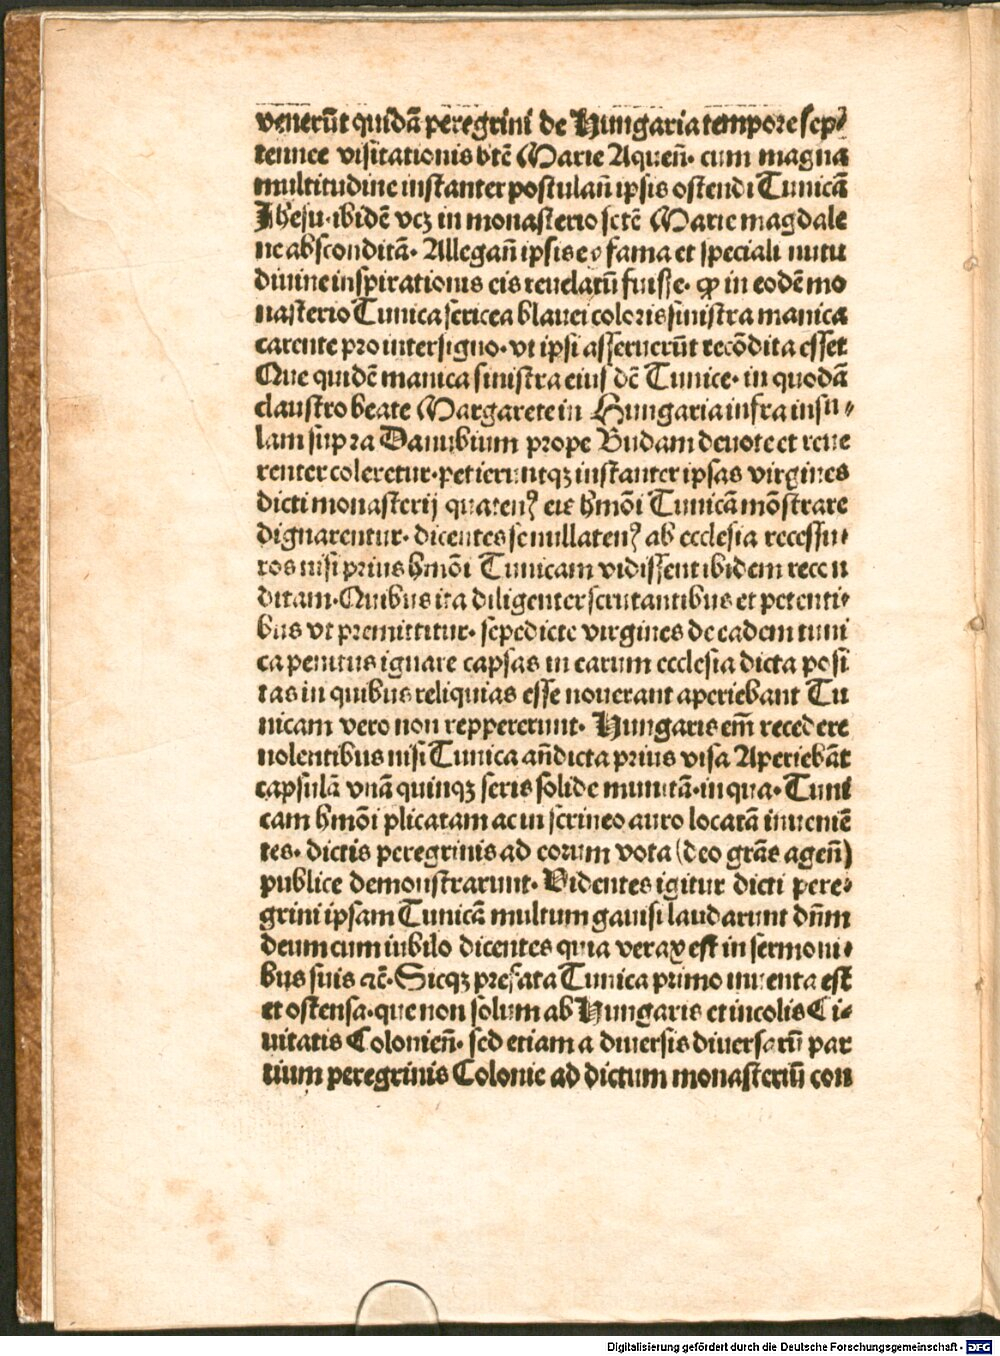 venerūt quidā peregrini de Hungaria tempore sep⸗
tennee visitationis btē Marie Aqueñ. cum magna
multitudine instanter postulañ ipsis ostendi Tunicā
Jhesu. ibidē vcꝫ in monasterio sctē Marie magdale
ne absconditā. Allegañ ipsis eꝫ fama et speciali nutu
diuine inspirationis eis reuelatū fuisse. ꝙ in eodē mo
nasterio Tunica sericea blauei coloris sinistra manica
carente pro intersigno. vt ipsi asseruerūt recōdita esset
Que quidē manica sinistra eius dē Tunice. in quodā
claustro beate Margarete in Hungaria infra insu⸗
lam supra Danubium prope Budam deuote et reue
renter coleretur. petieruntqꝫ instanter ipsas virgines
dicti monasterij quatenꝰ eis hmōi Tunicā mōstrare
dignarentur. dicentes se nullatenꝰ ab ecclesia recessu⸗
ros nisi prius hmōi Tunicam vidissent ibidem recon
ditam. Quibus ita diligenter scrutantibus et petenti⸗
bus vt premittitur. sepedicte virgines de eadem tuni
ca penitus ignare capsas in earum ecclesia dicta posi
tas in quibus reliquias esse nouerant aperiebant Tu
nicam vero non reppererunt. Hungaris em̄ recedere
nolentibus nisi Tunica añdicta prius visa Aperiebāt
capsulā vnā quinqꝫ seris solide munitā. in qua. Tuni
cam hmōi plicatam ac in scrineo auro locatā inuenie͂
tes. dictis peregrinis ad eorum vota (deo grās ageñ)
publice demonstrarunt. Videntes igitur dicti pere⸗
grini ipsam Tunicā multum gauisi laudarunt dn̄m
deum cum iubilo dicentes quia verax est in sermoni⸗
bus suis ⁊c̄. Sicqꝫ prefata Tunica primo inuenta est
et ostensa. que non solum ab Hungaris et incolis Ci⸗
uitatis Colonieñ. sed etiam a diuersis diuersarū par
tium peregrinis Colonie ad dictum monasteriū con
Digitalisierung gefördert durch die Deutsche Forschungsgemeinschaft - DFG